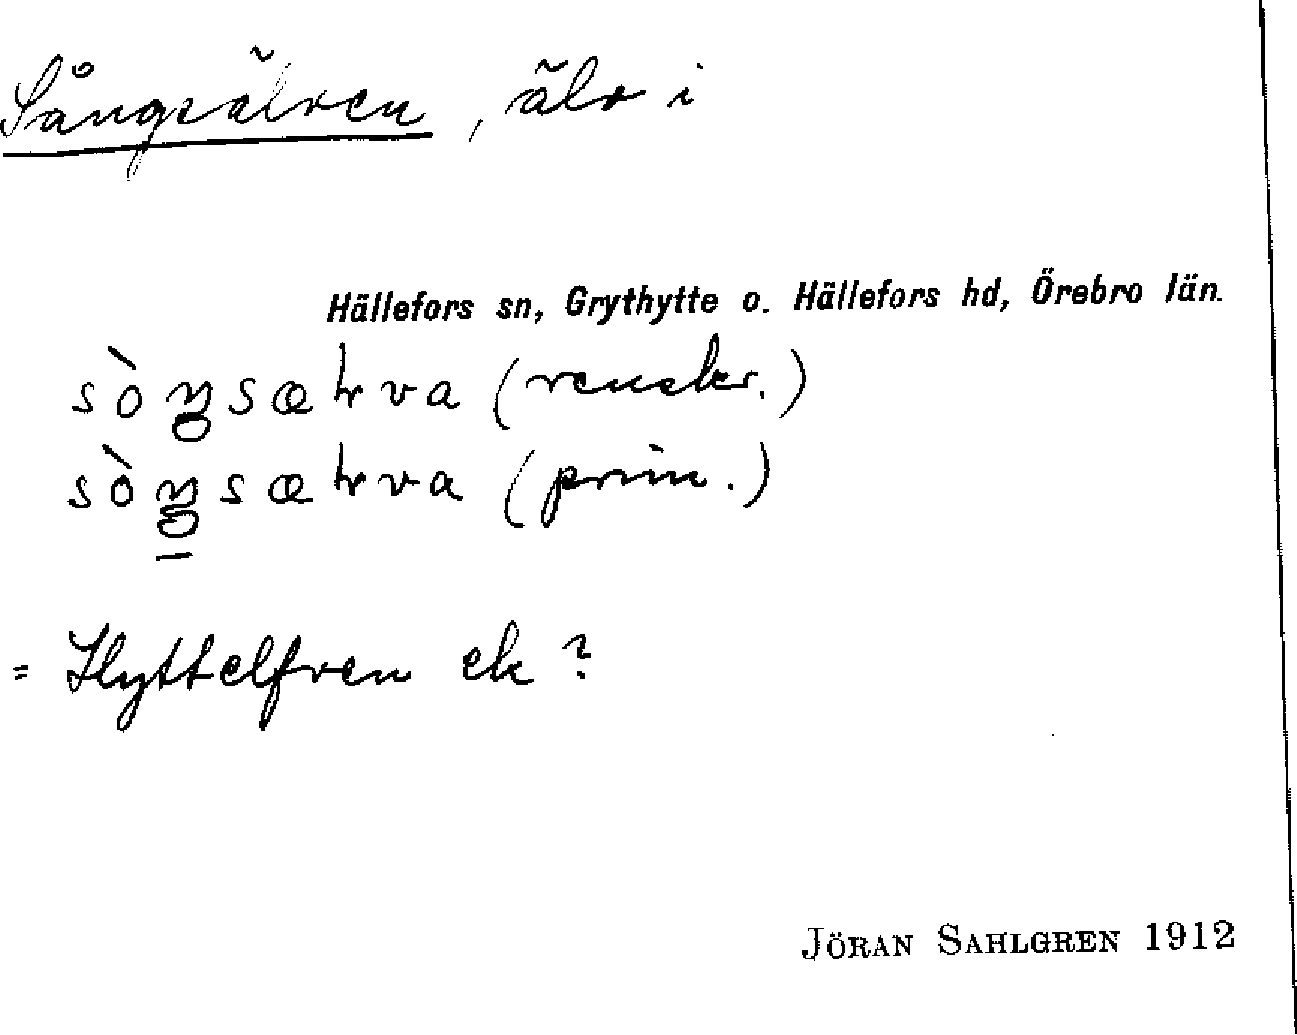 Sångsälven, älv i
Hällefors sn, Grythytte o. Hällefors hd, Örebro län.
sòŋsælva (renskr.)
sòŋsælva (prim.)
= Hyttelfven ek ?
JÖRAN SAHLGREN 1912